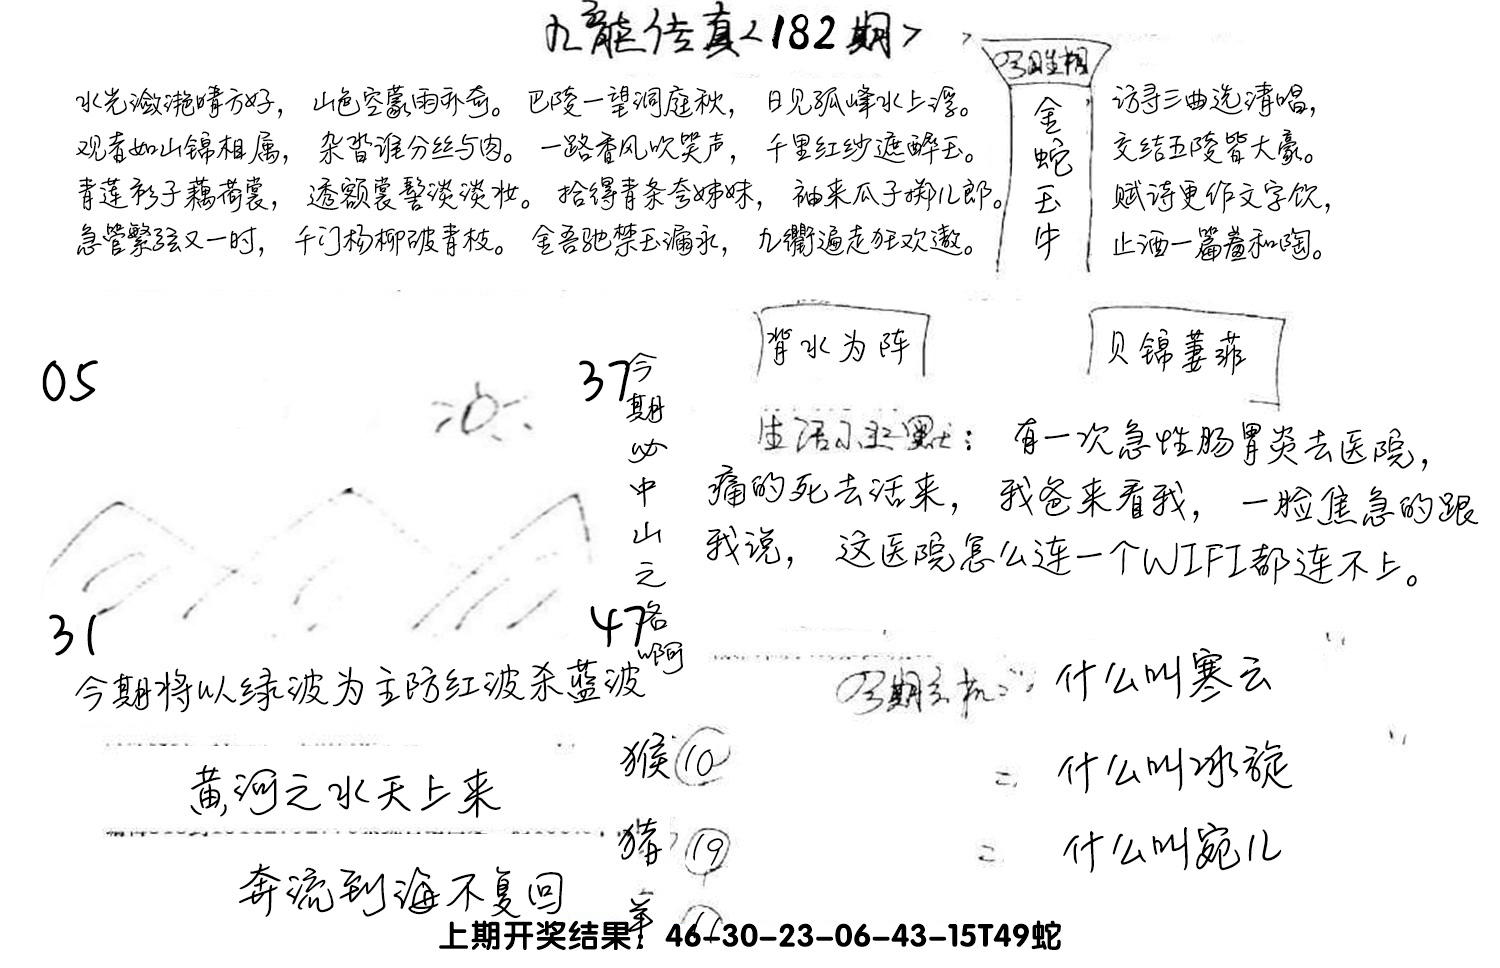 九龙传真<182期>
水光潋滟晴方好， 山色空蒙雨亦奇。 巴陵一望洞庭秋， 日见孤峰水上浮。
观者如山锦相属， 杂沓谁分丝与肉。 一路香风吹笑声， 千里红纱遮醉玉。
青莲衫子藕荷裳， 透额裳髻淡淡妆。 拾得青条夸姊妹， 袖来瓜子掷儿郎。
急管繁弦又一时， 千门杨柳破青枝。 金吾驰禁玉漏永， 九衢遍走狂欢遨。
今日生相
金蛇玉牛
访寻三曲选清唱，
交结五陵皆大豪。
赋诗更作文字饮，
止酒一篇羞和陶。
背水为阵
贝锦萋菲
05
37
31
47
今期必中山之名啊
生活小幽默： 有一次急性肠胃炎去医院，
痛的死去活来， 我爸来看我， 一脸焦急的跟
我说， 这医院怎么连一个WIFI都连不上。
今期将以绿波为主防红波杀蓝波
今期玄机： 什么叫寒云
= 什么叫冰旋
= 什么叫宛儿
黄河之水天上来
奔流到海不复回
猴 10
猪 19
羊 11
上期开奖结果：46-30-23-06-43-15T49蛇